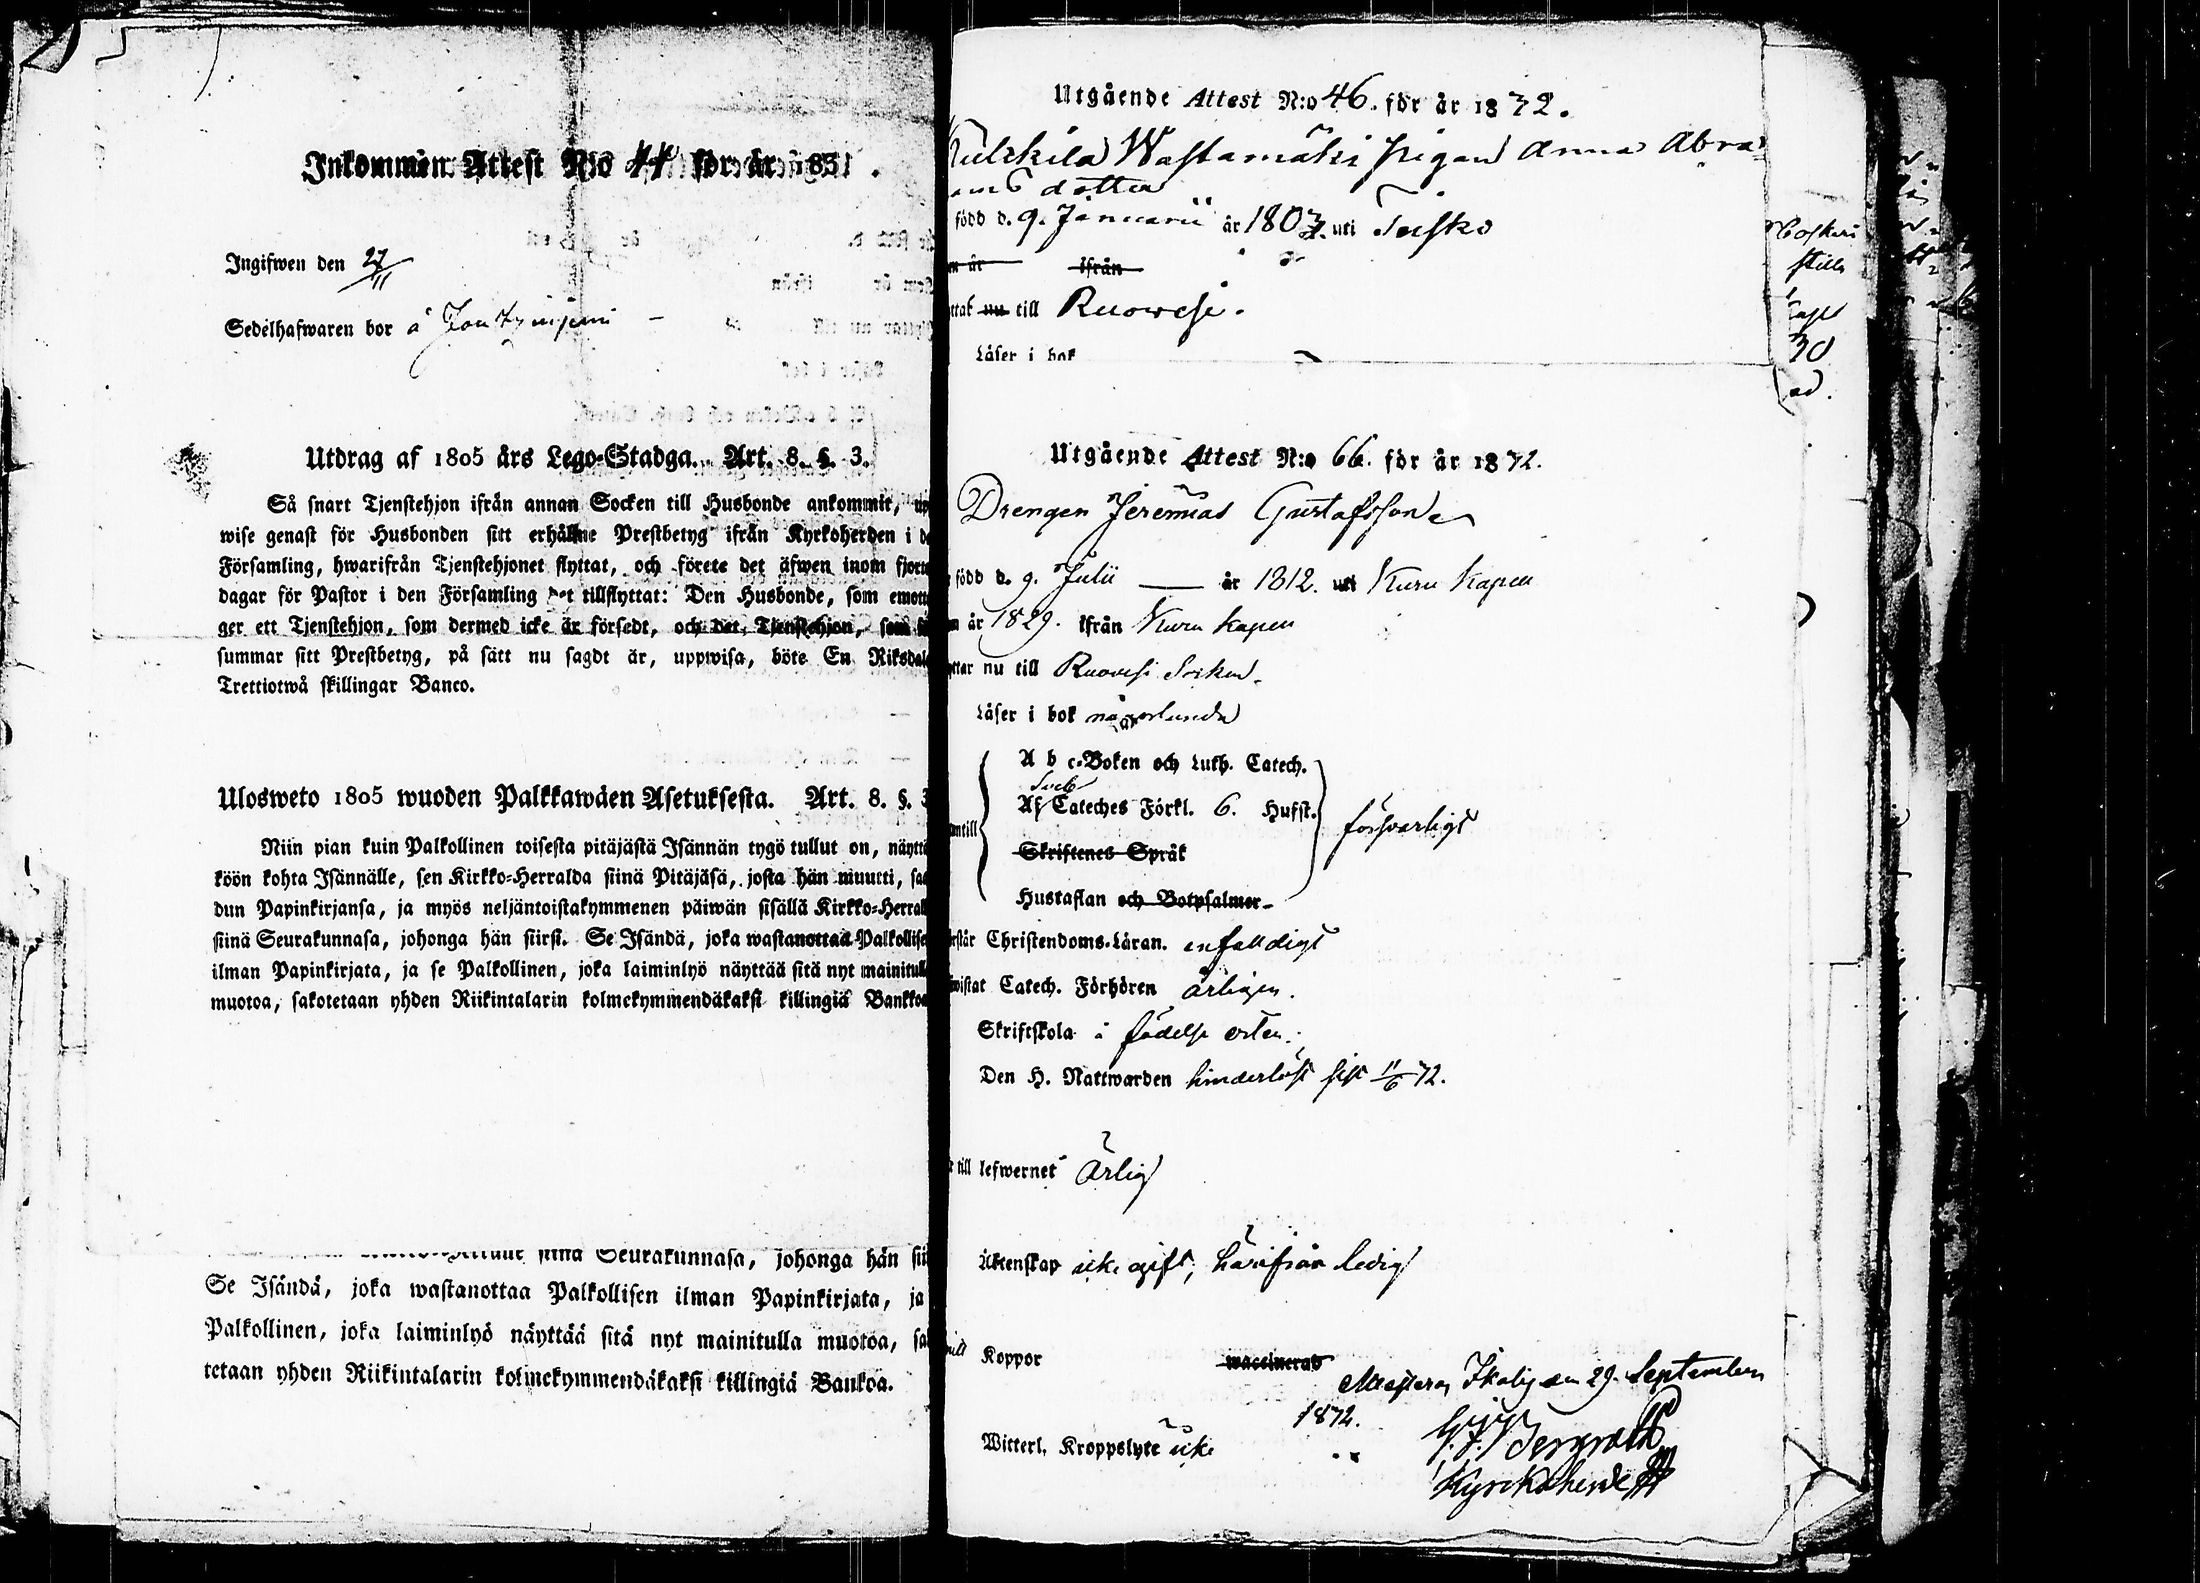 Inkommen Attest N:o 44 för år 1831.
Ingifwen den 27/11
Sedelhafwaren bor å
Utdrag af 1805 års Lego-Stadga. Art. 8. §. 3.
Så snart Tjenstehjon ifrån annan Socken till Husbonde ankommit, up
wise genast för Husbonden sitt erhållne Prestbetyg ifrån Kyrkoherden i de
Församling, hwarifrån Tjenstehjonet flyttat, och förete det äfwen inom fjorto
dagar för Pastor i den Församling det tillflyttat: Den Husbonde, som emotta
ger ett Tjenstehjon, som dermed icke är försedt, och det Tjenstehjon, som
summar sitt Prestbetyg, på sätt nu sagdt är, uppwisa, böte En Riksdale
Trettiotwå skillingar Banco.
Ulosweto 1805 wuoden Palkkawäen Asetuksesta. Art. 8. §. 3
Niin pian kuin Palkollinen toisesta pitäjästä Isännän tygö tullut on, näyttä
köön kohta Isännälle, sen Kirkko-Herralda siinä Pitäjäsä, josta hän muutti, saa
dun Papinkirjansa, ja myös neljäntoistakymmenen päiwän sisällä Kirkko-Herral
siinä Seurakunnasa, johonga hän siirsi. Se Isändä, joka wastanottaa Palkollise
ilman Papinkirjata, ja se Palkollinen, joka laiminlyö näyttää sitä nyt mainitulla
muotoa, sakotetaan yhden Riikintalarin kolmekymmendäkaksi killingiä Bankoa
siinä Seurakunnasa, johonga hän sii
Se Isändä, joka wastanottaa Palkollisen ilman Papinkirjata, ja
Palkollinen, joka laiminlyö näyttää sitä nyt mainitulla muotoa, sa
tetaan yhden Riikintalarin kolmekymmendäkaksi killingiä Bankoa.
Utgående Attest N:o 46. för år 1872.
Wastamäki Pigan Anna Abra
ams dotter
född d. 9. Januarii år 1803 uti
n år ifrån
ttat nu till Ruowesi.
Läser i bok
Utgående Attest N:o 66. för år 1872.
Drengen Jeremias Gustafsson
född d. 9. Julii år 1812. uti Kuru Kapell
n år 1829. ifrån Kuru Kapell
yttar nu till Ruovesi Socken.
Läser i bok någorlunda
A b c-Boken och Luth. Catech.
Sveb
Af Cateches Förkl. 6. Hufst.
antill försvarligt
Skriftenes Språk
Hustaflan och Botpsalmer
rstår Christendoms-Läran. enfaldigt
wistat Catech. Förhören årligen.
Skriftskola å födelse orten.
Den H. Nattwarden hinderlöst sist 11/6 72.
e till lefwernet Ärlig
Äktenskap icke gift, härifrån ledig
Koppor waccinerad
Attesterar, Ikalis den 29. September
1872.
Witterl. Kroppslyte icke
Kyrkoherde